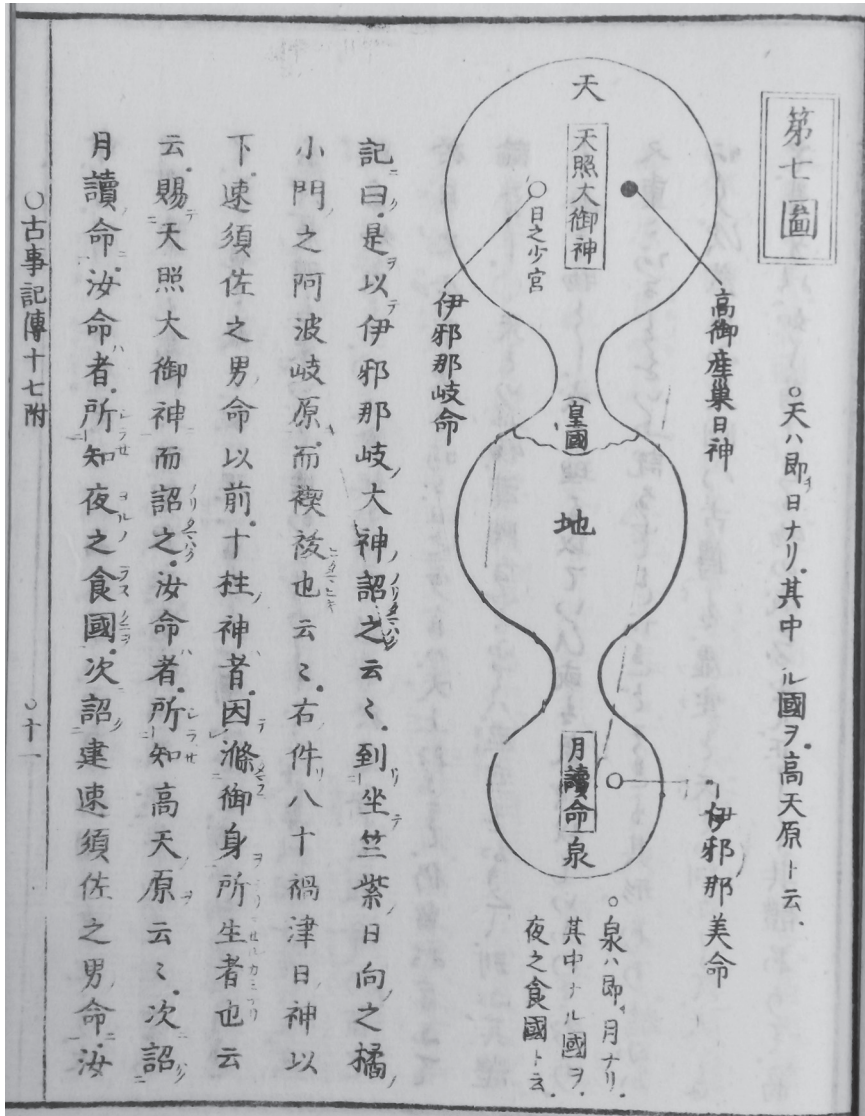 第七圖
○天ハ即チ日ナリ。其中ナル國ヲ。高天原ト云、
天
天照大御神
日之少宮
高御産巣日神
伊邪那岐命
皇國
地
月讀命
泉
伊邪那美命
○泉ハ即チ月ナリ。
其中ナル國ヲ。
夜之食國ト云。
記曰。是以伊邪那岐大神詔之云々。到坐竺紫日向之橘
小門之阿波岐原而禊祓也云々。右件八十禍津日神以
下速須佐之男命以前。十柱神者。因滌御身所生者也云
云。賜天照大御神而詔之。汝命者。所知高天原云々。次詔
月讀命。汝命者。所知夜之食國。次詔建速須佐之男命。汝
○古事記傳十七附
○十一